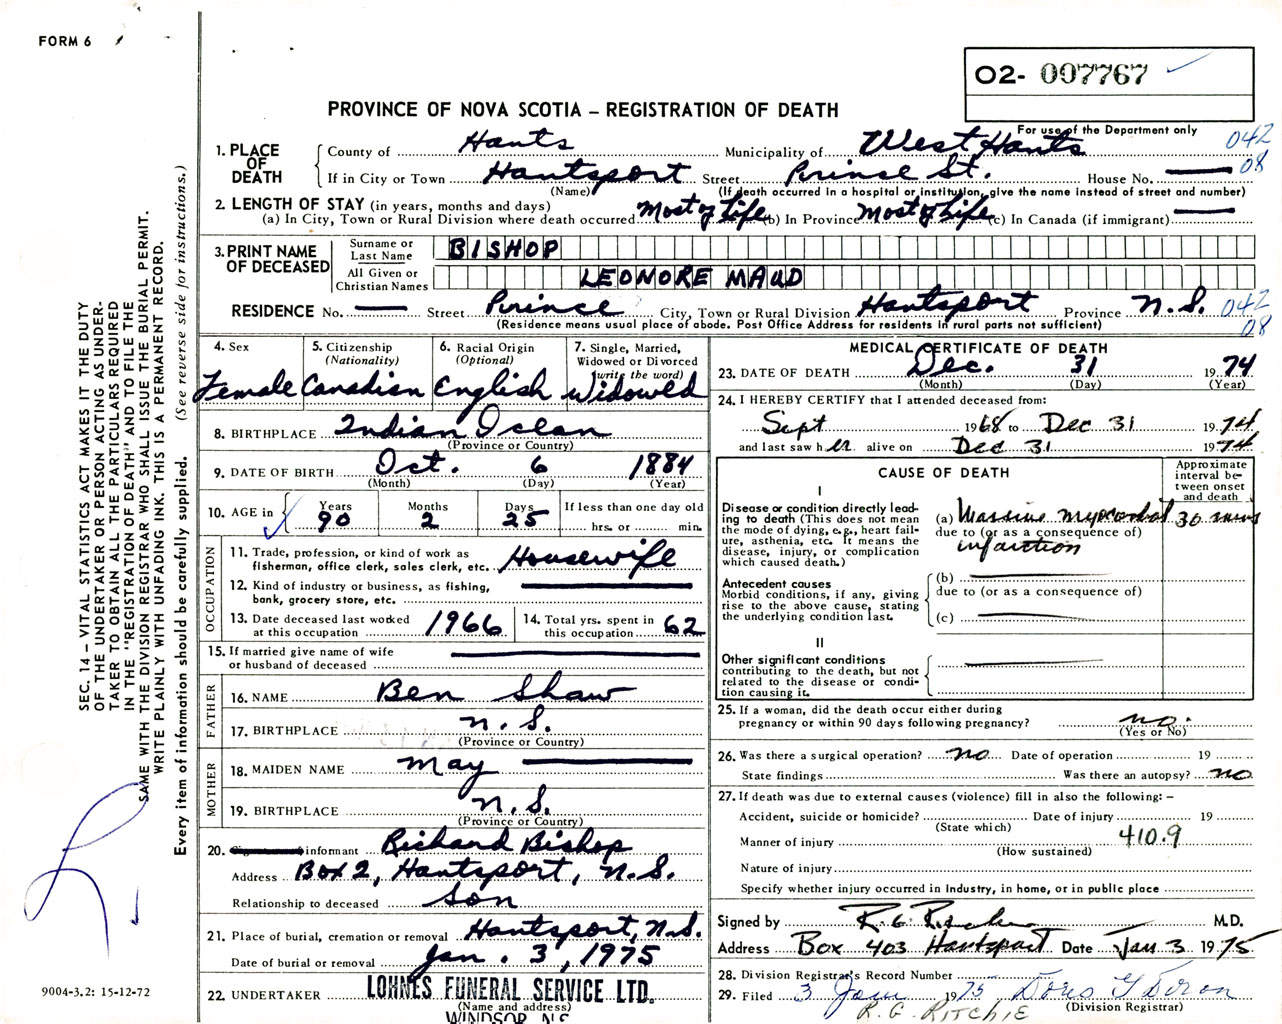 FORM 6
O2- 007767
PROVINCE OF NOVA SCOTIA – REGISTRATION OF DEATH
For use of the Department only
042
08
1. PLACE OF DEATH
County of Hants Municipality of West Hants
If in City or Town Hantsport Street Prince St. House No. —
(Name) (If death occurred in a hospital or institution, give the name instead of street and number)
2. LENGTH OF STAY (in years, months and days)
(a) In City, Town or Rural Division where death occurred Most of Life (b) In Province Most of Life (c) In Canada (if immigrant) —
3. PRINT NAME OF DECEASED
Surname or Last Name BISHOP
All Given or Christian Names LEONORE MAUD
RESIDENCE No. — Street Prince City, Town or Rural Division Hantsport Province N.S. 042
08
(Residence means usual place of abode. Post Office Address for residents in rural parts not sufficient)
4. Sex
Female
5. Citizenship
(Nationality)
Canadian
6. Racial Origin
(Optional)
English
7. Single, Married,
Widowed or Divorced
(write the word)
Widowed
8. BIRTHPLACE Indian Ocean
(Province or Country)
9. DATE OF BIRTH Oct. 6 1884
(Month) (Day) (Year)
10. AGE in
Years Months Days If less than one day old
90 2 25 hrs. or min.
OCCUPATION
11. Trade, profession, or kind of work as
fisherman, office clerk, sales clerk, etc. Housewife
12. Kind of industry or business, as fishing,
bank, grocery store, etc. —
13. Date deceased last worked
at this occupation 1966
14. Total yrs. spent in
this occupation 62
15. If married give name of wife
or husband of deceased —
FATHER
16. NAME Ben Shaw
17. BIRTHPLACE N.S.
(Province or Country)
MOTHER
18. MAIDEN NAME May —
19. BIRTHPLACE N.S.
(Province or Country)
20. informant Richard Bishop
Address Box 2, Hantsport, N.S.
Relationship to deceased Son
21. Place of burial, cremation or removal Hantsport, N.S.
Date of burial or removal Jan. 3, 1975
22. UNDERTAKER LOHNES FUNERAL SERVICE LTD.
(Name and address)
WINDSOR, N.S.
MEDICAL CERTIFICATE OF DEATH
23. DATE OF DEATH Dec. 31 1974
(Month) (Day) (Year)
24. I HEREBY CERTIFY that I attended deceased from:
Sept 1968 to Dec 31 1974
and last saw her alive on Dec 31 1974
CAUSE OF DEATH
Approximate
interval be-
tween onset
and death
I
Disease or condition directly lead-
ing to death (This does not mean
the mode of dying, e.g., heart fail-
ure, asthenia, etc. It means the
disease, injury, or complication
which caused death.)
(a) Massive myocardial 30 mins
due to (or as a consequence of)
infarction
Antecedent causes
Morbid conditions, if any, giving
rise to the above cause, stating
the underlying condition last.
(b) —
due to (or as a consequence of)
(c) —
II
Other significant conditions
contributing to the death, but not
related to the disease or condi-
tion causing it.
25. If a woman, did the death occur either during
pregnancy or within 90 days following pregnancy? no.
(Yes or No)
26. Was there a surgical operation? no Date of operation 19
State findings Was there an autopsy? no
27. If death was due to external causes (violence) fill in also the following: –
Accident, suicide or homicide? Date of injury 19
(State which)
Manner of injury 410.9
(How sustained)
Nature of injury
Specify whether injury occurred in industry, in home, or in public place
Signed by R.G. Ritchie M.D.
Address Box 403 Hantsport Date Jan 3 1975
28. Division Registrar's Record Number
29. Filed 3 Jan 1975 Doris G
(Division Registrar)
R.G. RITCHIE
SEC. 14 – VITAL STATISTICS ACT MAKES IT THE DUTY
OF THE UNDERTAKER OR PERSON ACTING AS UNDER-
TAKER TO OBTAIN ALL THE PARTICULARS REQUIRED
IN THE "REGISTRATION OF DEATH" AND TO FILE THE
SAME WITH THE DIVISION REGISTRAR WHO SHALL ISSUE THE BURIAL PERMIT.
WRITE PLAINLY WITH UNFADING INK. THIS IS A PERMANENT RECORD.
Every item of information should be carefully supplied. (See reverse side for instructions.)
9004-3.2: 15-12-72